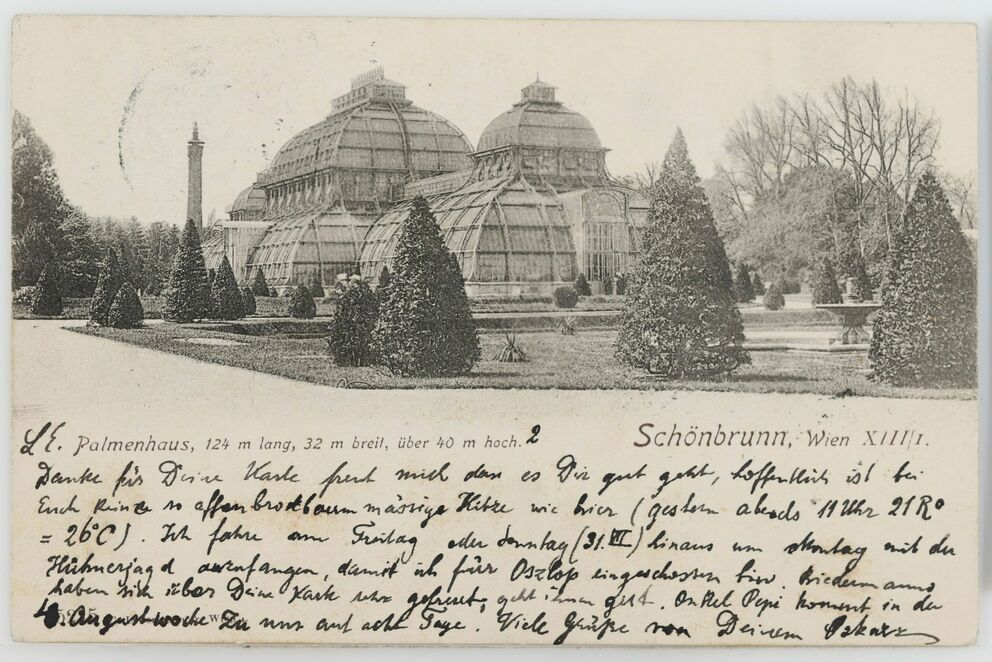 L.E. Palmenhaus, 124 m lang, 32 m breit, über 40 m hoch. 2 Schönbrunn, Wien XIII/1.
Danke für Deine Karte freut mich dass es Dir gut geht, hoffentlich ist bei
Euch keine so affenbrodbaummässige Hitze wie hier (gestern abends 11 Uhr 21 R°
= 26°C). Ich fahre am Freitag oder Sonntag (31. VII) hinaus um Montag mit der
Hühnerjagd anzufangen, damit ich für Oszlop eingeschossen bin. Biedermanns
haben sich über Deine Karte sehr gefreut, geht ihnen gut. Onkel Pepi kommt in der
4. Augustwoche zu uns auf acht Tage. Viele Grüße von Deinem Oskar